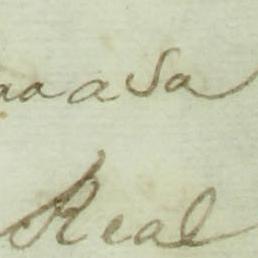 a a a Sa
Real